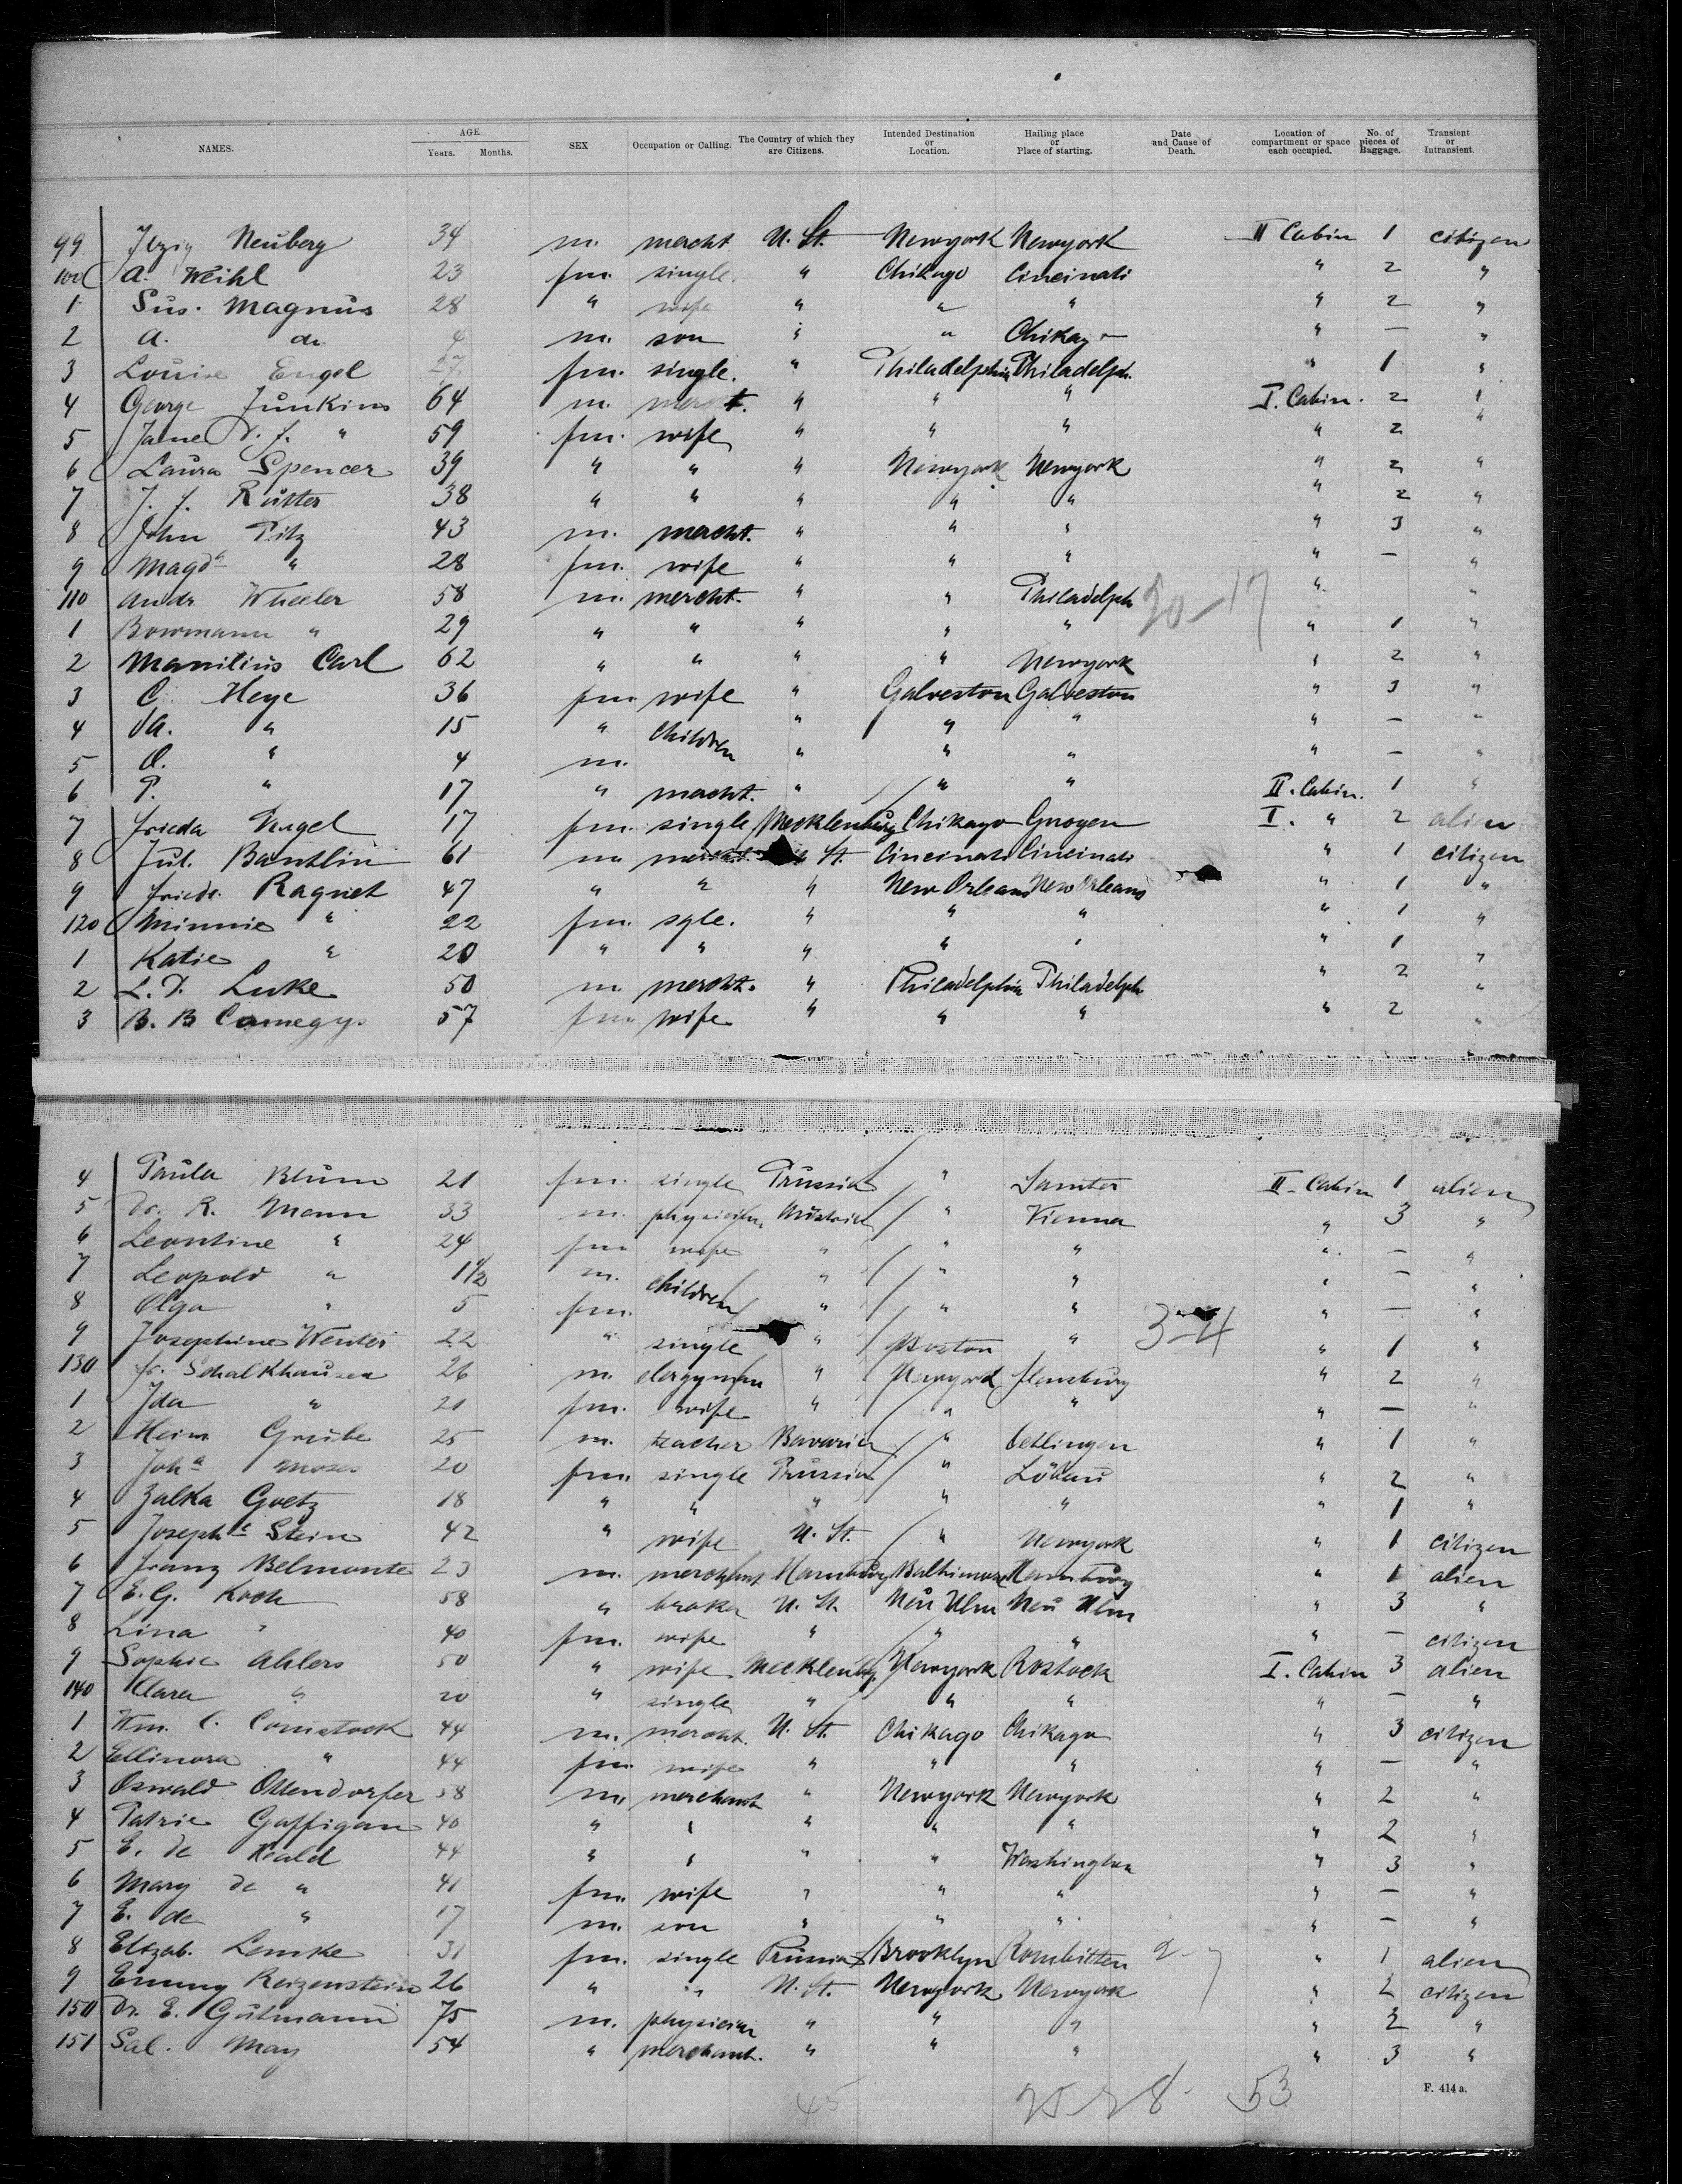 NAMES. AGE Years. Months. SEX Occupation or Calling. The Country of which they are Citizens. Intended Destination or Location. Hailing place or Place of starting. Date and Cause of Death. Location of compartment or space each occupied. No. of pieces of Baggage. Transient or Intransient.
99 Itzig Neuberg 34 m. mercht U. St. Newyork Newyork II Cabin 1 citizen
100 A. Weihl 23 fm. single. " Chikago Cincinati " 2 "
1 Sus. Magnus 28 " wife " " " " 2 "
2 A. do. 4 m. son " " Chikago " — "
3 Louise Engel 27 fm. single. " Philadelphia Philadelph. " 1 "
4 George Junkins 64 m. mercht. " " " I. Cabin. 2 "
5 Jane D. J. " 59 fm. wife " " " " 2 "
6 Laura Spencer 39 " " " Newyork Newyork " 2 "
7 J. J. Rutter 38 " " " " " " 2 "
8 John Pitz 43 m. mercht. " " " " 3 "
9 Magda " 28 fm. wife " " " " — "
110 Andr. Wheeler 58 m. mercht. " " Philadelph 20-17 " "
1 Bowmann " 29 " " " " " " 1 "
2 Manitius Carl 62 " " " " Newyork " 2 "
3 C. Heye 36 fm wife " Galveston Galveston " 3 "
4 A. " 15 " children " " " " — "
5 O. " 4 m. " " " " — "
6 P. " 17 " mercht. " " " II. Cabin. 1 "
7 Frieda Nagel 17 fm. single Mecklenburg Chikago Gnoyen I. " 2 alien
8 Jul. Bantlin 61 m mercht St. Cincinati Cincinati " 1 citizen
9 Friedr. Ragnet 47 " " " New Orleans New Orleans " 1 "
120 Minnie " 22 fm. sgle. " " " " 1 "
1 Katie " 20 " " " " " " 1 "
2 L. D. Luke 50 m mercht. " Philadelphia Philadelph " 2 "
3 B. B Comegys 57 fm wife " " " " 2 "
4 Paula Blum 21 fm. single Prussia " Samter II. Cabin 1 alien
5 Dr. R. Mann 33 m. physician Austria " Vienna " 3 "
6 Leontine " 24 fm wife " " " " — "
7 Leopold " 1 1/2 m. children " " " " — "
8 Olga " 5 fm. " " " " — "
9 Josephine Wenter 22 " single " Boston " 3-4 " 1 "
130 Fr. Schalkhauser 26 m. clergyman " Newyork Flensburg " 2 "
1 Ida " 21 fm. wife " " " " — "
2 Heinr. Grube 25 m. teacher Bavaria " Oettingen " 1 "
3 Joha Moses 20 fm. single Prussia " Löbau " 2 "
4 Zalka Goetz 18 " " " " " " 1 "
5 Josephe Stein 42 " wife U. St. " Newyork " 1 citizen
6 Franz Belmonte 23 m. merchant Hamburg Baltimore Hamburg " 1 alien
7 E. G. Koch 58 " broker U. St. Neu Ulm Neu Ulm " 3 "
8 Lina " 40 fm. wife " " " " — citizen
9 Sophie Ahlers 50 " wife Mecklenbg. Newyork Rostock I. Cabin 3 alien
140 Clara " 20 " single " " " " — "
1 Wm. C. Comstock 44 m. mercht. U. St. Chikago Chikago " 3 citizen
2 Ellinora " 44 fm wife " " " " — "
3 Oswald Ottendorfer 58 m. merchant " Newyork Newyork " 2 "
4 Patric Gaffigan 40 " " " " " " 2 "
5 E. de Heald 44 " " " " Washington " 3 "
6 Mary de " 41 fm. wife " " " " — "
7 E. de " 17 m. son " " " " — "
8 Elizab. Lemke 31 fm. single Prussia Brooklyn Rombitten " 1 alien
9 Emmy Reizenstein 26 " " U. St. Newyork Newyork " 2 citizen
150 Dr. E. Gutmann 75 m. physician " " " " 2 "
151 Sal. May 54 " merchant. " " " " 3 "
45 53
F. 414 a.